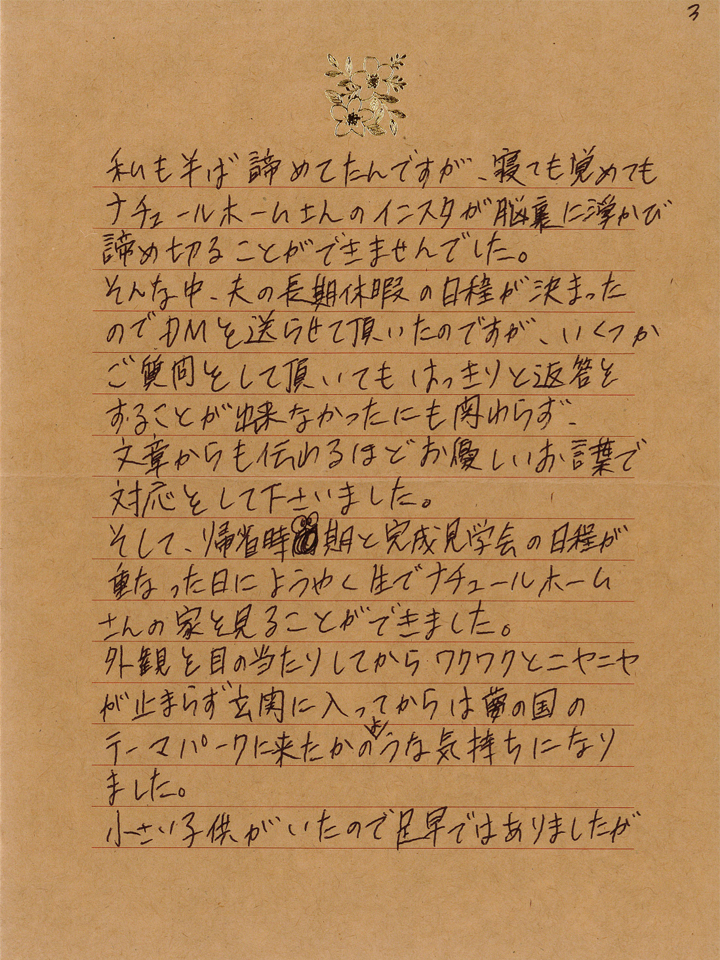 3
私も半ば諦めてたんですが、寝ても覚めても
ナチュールホームさんのインスタが脳裏に浮かび
諦め切ることができませんでした。
そんな中、夫の長期休暇の日程が決まった
のでDMを送らせて頂いたのですが、いくつか
ご質問をして頂いてもはっきりと返答を
することが出来なかったにも関わらず、
文章からも伝わるほどお優しいお言葉で
対応をして下さいました。
そして、帰省時期と完成見学会の日程が
重なった日にようやく生でナチュールホーム
さんの家を見ることができました。
外観を目の当たりしてからワクワクとニヤニヤ
が止まらず玄関に入ってからは夢の国の
テーマパークに来たかのような気持ちになり
ました。
小さい子供がいたので足早ではありましたが